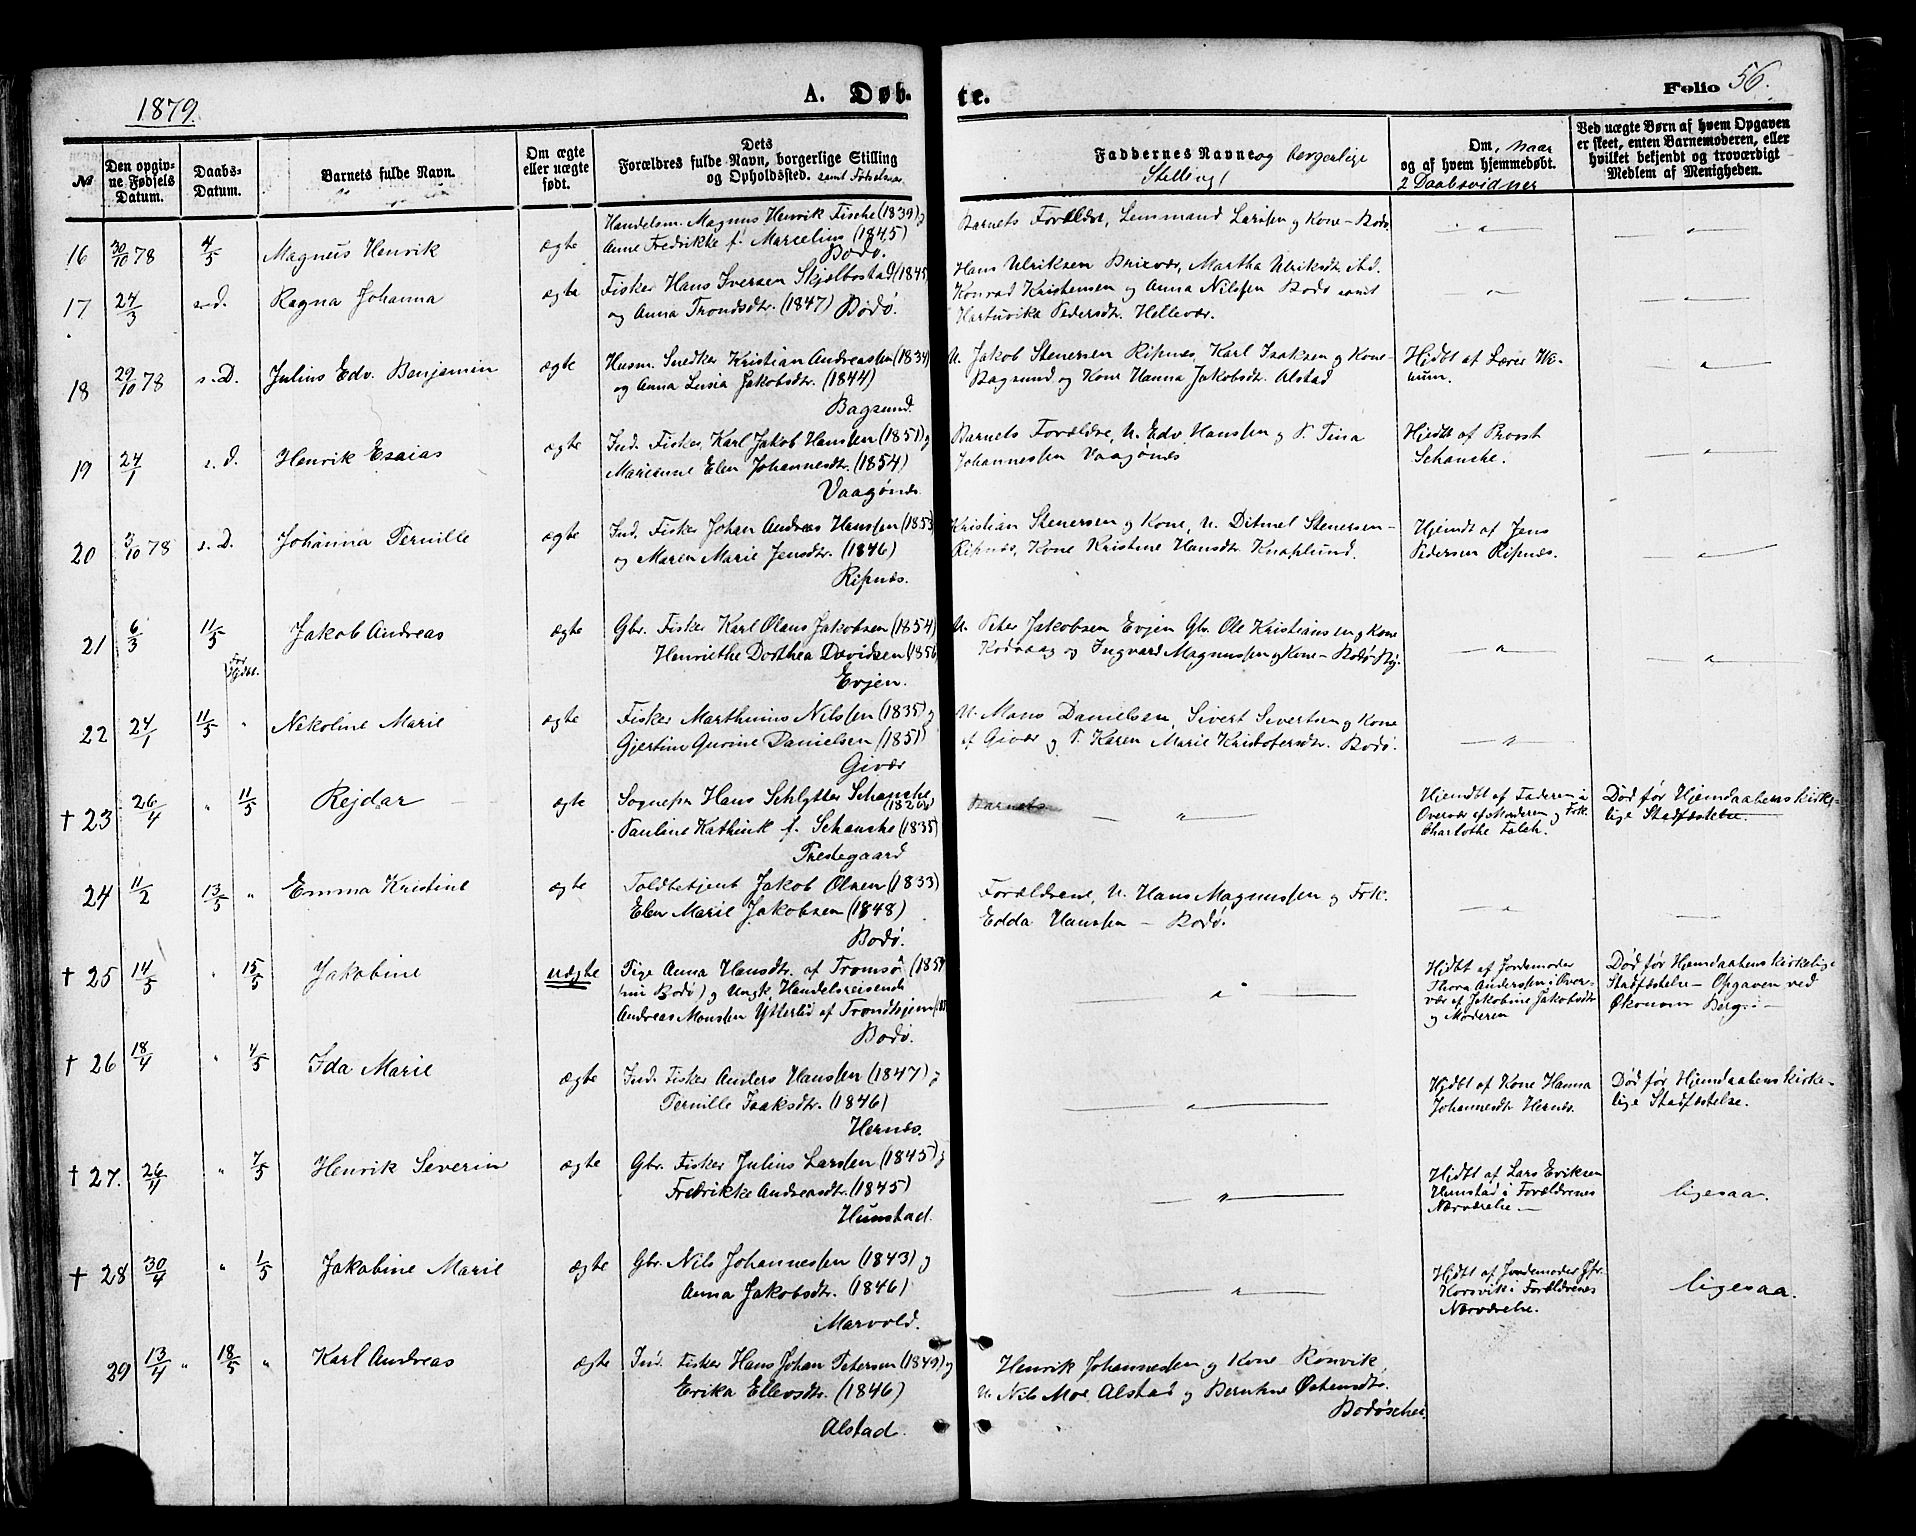 1879
A. Døb-
te.
Folio 56.
№
Den opgiv-
ne Fødsels
Datum.
Daabs-
Datum.
Barnets fulde Navn.
Om ægte
eller uægte
født.
Dets
Forældres fulde Navn, borgerlige Stilling
og Opholdssted. samt Fødselsaar
Faddernes Navne og borgerlige
Stilling
Om, naar
og af hvem hjemmedøbt.
2 Daabsvidner
Ved uægte Børn af hvem Opgaven
er skeet, enten Barnemoderen, eller
hvilket bekjendt og troværdigt
Medlem af Menigheden.
16 30/10 78 4/5 Magnus Henrik ægte
Handelsm. Magnus Henrik Fische (1839) g
Anne Fredrikke f. Marcelius (1845)
Bodø.
Barnets Forældre, Lensmand Larssen g Kone – Bodø
17 24/3 s.d. Ragna Johanna ægte
Fisker Hans Iversen Skjelbostad (1845
og Anna Trondsdtr. (1847) Bodø.
Hans Ulriksen Brixvær, Martha Ulriksdt. ibd.
Konrad Kristensen og Anna Nilssen Bodø samt
Hartuvika Pedersdtr. Hellevær.
18 29/10 78 s.D. Julius Edv. Benjamin ægte
Husm. Snedker Kristian Andreassen (1834)
og Anna Lusia Jakobsdtr. (1844)
Bagsund.
U. Jakob Stenersen Ripnæs, Karl Isaksen g Kone –
Bagsund og Kone Hanna Jakobsdtr. Alstad
Hjdbt af Lærer
19 24/1 s.d. Henrik Esaias ægte
Ind. Fisker Karl Jakob Hanssen (1851) g
Marianne Elen Johannesdtr. (1854)
Vaagønes
Barnets Forældre, U. Edv. Hanssen g P. Tina
Johannessen Vaagønes
Hjdbt af Provst
Schanche.
20 3/10 78 s.D. Johanna Pernille ægte
Ind. Fisker Johan Andreas Hanssen (1853
og Maren Marie Jensdtr. (1846)
Ripnæs.
Kristian Stenersen g Kone, U. Ditmel Stenersen –
Ripnæs, Kone Kristine Hansdtr. Knaplund.
Hjemdt af Jens
Pedersen Ripnæs.
21 6/3 11/5 Jakob Andreas ægte
Gbr. Fisker Karl Olaus Jakobsen (1854)
Henriethe Dorthea Davidsen (1856
Evjen.
U. Peter Jakobsen Evjen Gbr. Ole Kristiansen g Kone
Kodvaag og Ingvard Magnussen g Kone – Bodø By.
For Hjdbt.
22 24/1 11/5 " Nikoline Marie ægte
Fisker Marthinius Nilssen (1835) g
Gjertine Gurine Danielsen (1851)
Givær
U. Mons Danielsen, Sivert Sivertsen g Kone
af Givær g P. Karen Marie Kristofersdtr. Bodø.
† 23 26/4 " 11/5 Rejdar ægte
Sognepr. Hans Schlytter Schanche
(1826)
Pauline Kathink f. Schanche (1835)
Prestegaard
Barnets
Hjemdt af Faderen i
Overvær af Moderen g Frk.
Charlothe Falch.
Død før Hjemdaabens kirke-
lige Stadfæstelse.
24 11/2 13/5 " Emma Kristine ægte
Toldbetjent Jakob Olsen (1833)
Elen Marie Jakobsen (1848)
Bodø.
Forældrene, U. Hans Magnussen g Frk.
Edda Hanssen – Bodø.
† 25 14/5 " 15/5 Jakobine uægte
Pige Anna Hansdtr. af Tromsø (185
(nu Bodø) g Ungk. Handelsreisende
Andreas Monssen Ytterlid af Trondhjem
Bodø.
Hjdbt af Jordemoder
Thora Anderssen i Over-
vær af Jakobine Jakobsdtr
g Moderen
Død før Hjemdaabens kirkelige
Stadfæstelse – Opgaven ved
Økonom Berg. –
† 26 18/4 " 4/5 Ida Marie ægte
Ind. Fisker Anders Hanssen (1847) g
Pernille Isaksdtr. (1846)
Hernæs.
Hjdbt af Kone Hanna
Johannesdtr Hernæs.
Død før Hjemdaabens kirke-
lige Stadfæstelse.
† 27. 26/4 " 7/5 Henrik Severin ægte
Gbr. Fisker Julius Larssen (1845) g
Fredrikke Andreasdtr. (1845)
Hunstad.
Hjdbt af Lars Eriksen
Hunstad i Forældrenes
Nærværelse. –
ligesaa.
† 28 30/4 " 1/5 Jakobine Marie ægte
Gbr. Nils Johannessen (1843) g
Anna Jakobsdtr. (1846)
Marvold.
Hjdbt af Jordemoder
Korsvik i Forældrenes
Nærværelse.
ligesaa.
29 13/4 " 18/5 " Karl Andreas ægte
Ind. Fisker Hans Johan Petersen (1849) g
Erika Ellevsdtr. (1846)
Alstad.
Henrik Johannessen g Kone – Ronvik,
U. Nils Moe Alstad g Bernhne Østensdtr.